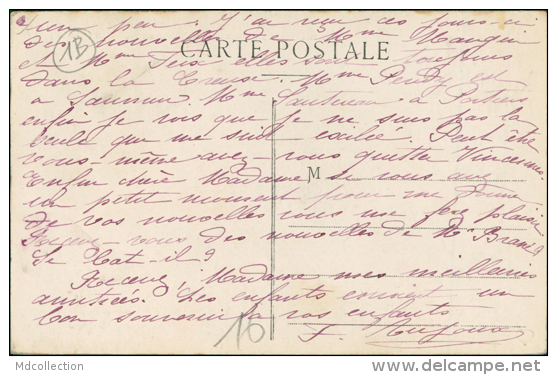 un peu. J'ai reçu ces jours-ci
des nouvelles de Mme Mangin
CARTE POSTALE
1B
et Mme elles sont toujours
dans la Creuse. Mme est
à Saumur. Mme à Poitiers
enfin je vois que je ne suis pas la
seule qui me suis exilée. Peut-être
vous-même avez-vous quitté Vincennes
Enfin chère Madame si vous avez
M
un petit moment pour me donner
de vos nouvelles vous me ferez plaisir
Recevez-vous des nouvelles de Mr
Se bat-il?
Recevez, Madame mes meilleures
amitiés. Les enfants envoient un
bon souvenir à vos enfants
16
F.
Mdcollection
www.delcampe.net